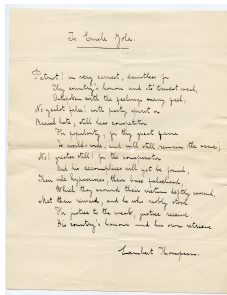 To Emile Zola.
Patriot! in very earnest, dauntless for
Thy country's honour and its truest weal,
with the feelings many feel,
No zealot foiled with party spirit or
Breech hate, still less competitor
For popularity, for thy great game
Is world-wide, and will still remain the same;
No! greater still! for the conspirator
And his accomplices will yet be found,
Their vile hypocrisies, their base falsehood,
Which they around their victim tightly wound,
Meet their reward, and he who nobly stood
For justice to the weak, justice receive
His country's honour and his own retrieve.
Lambert Thompson.